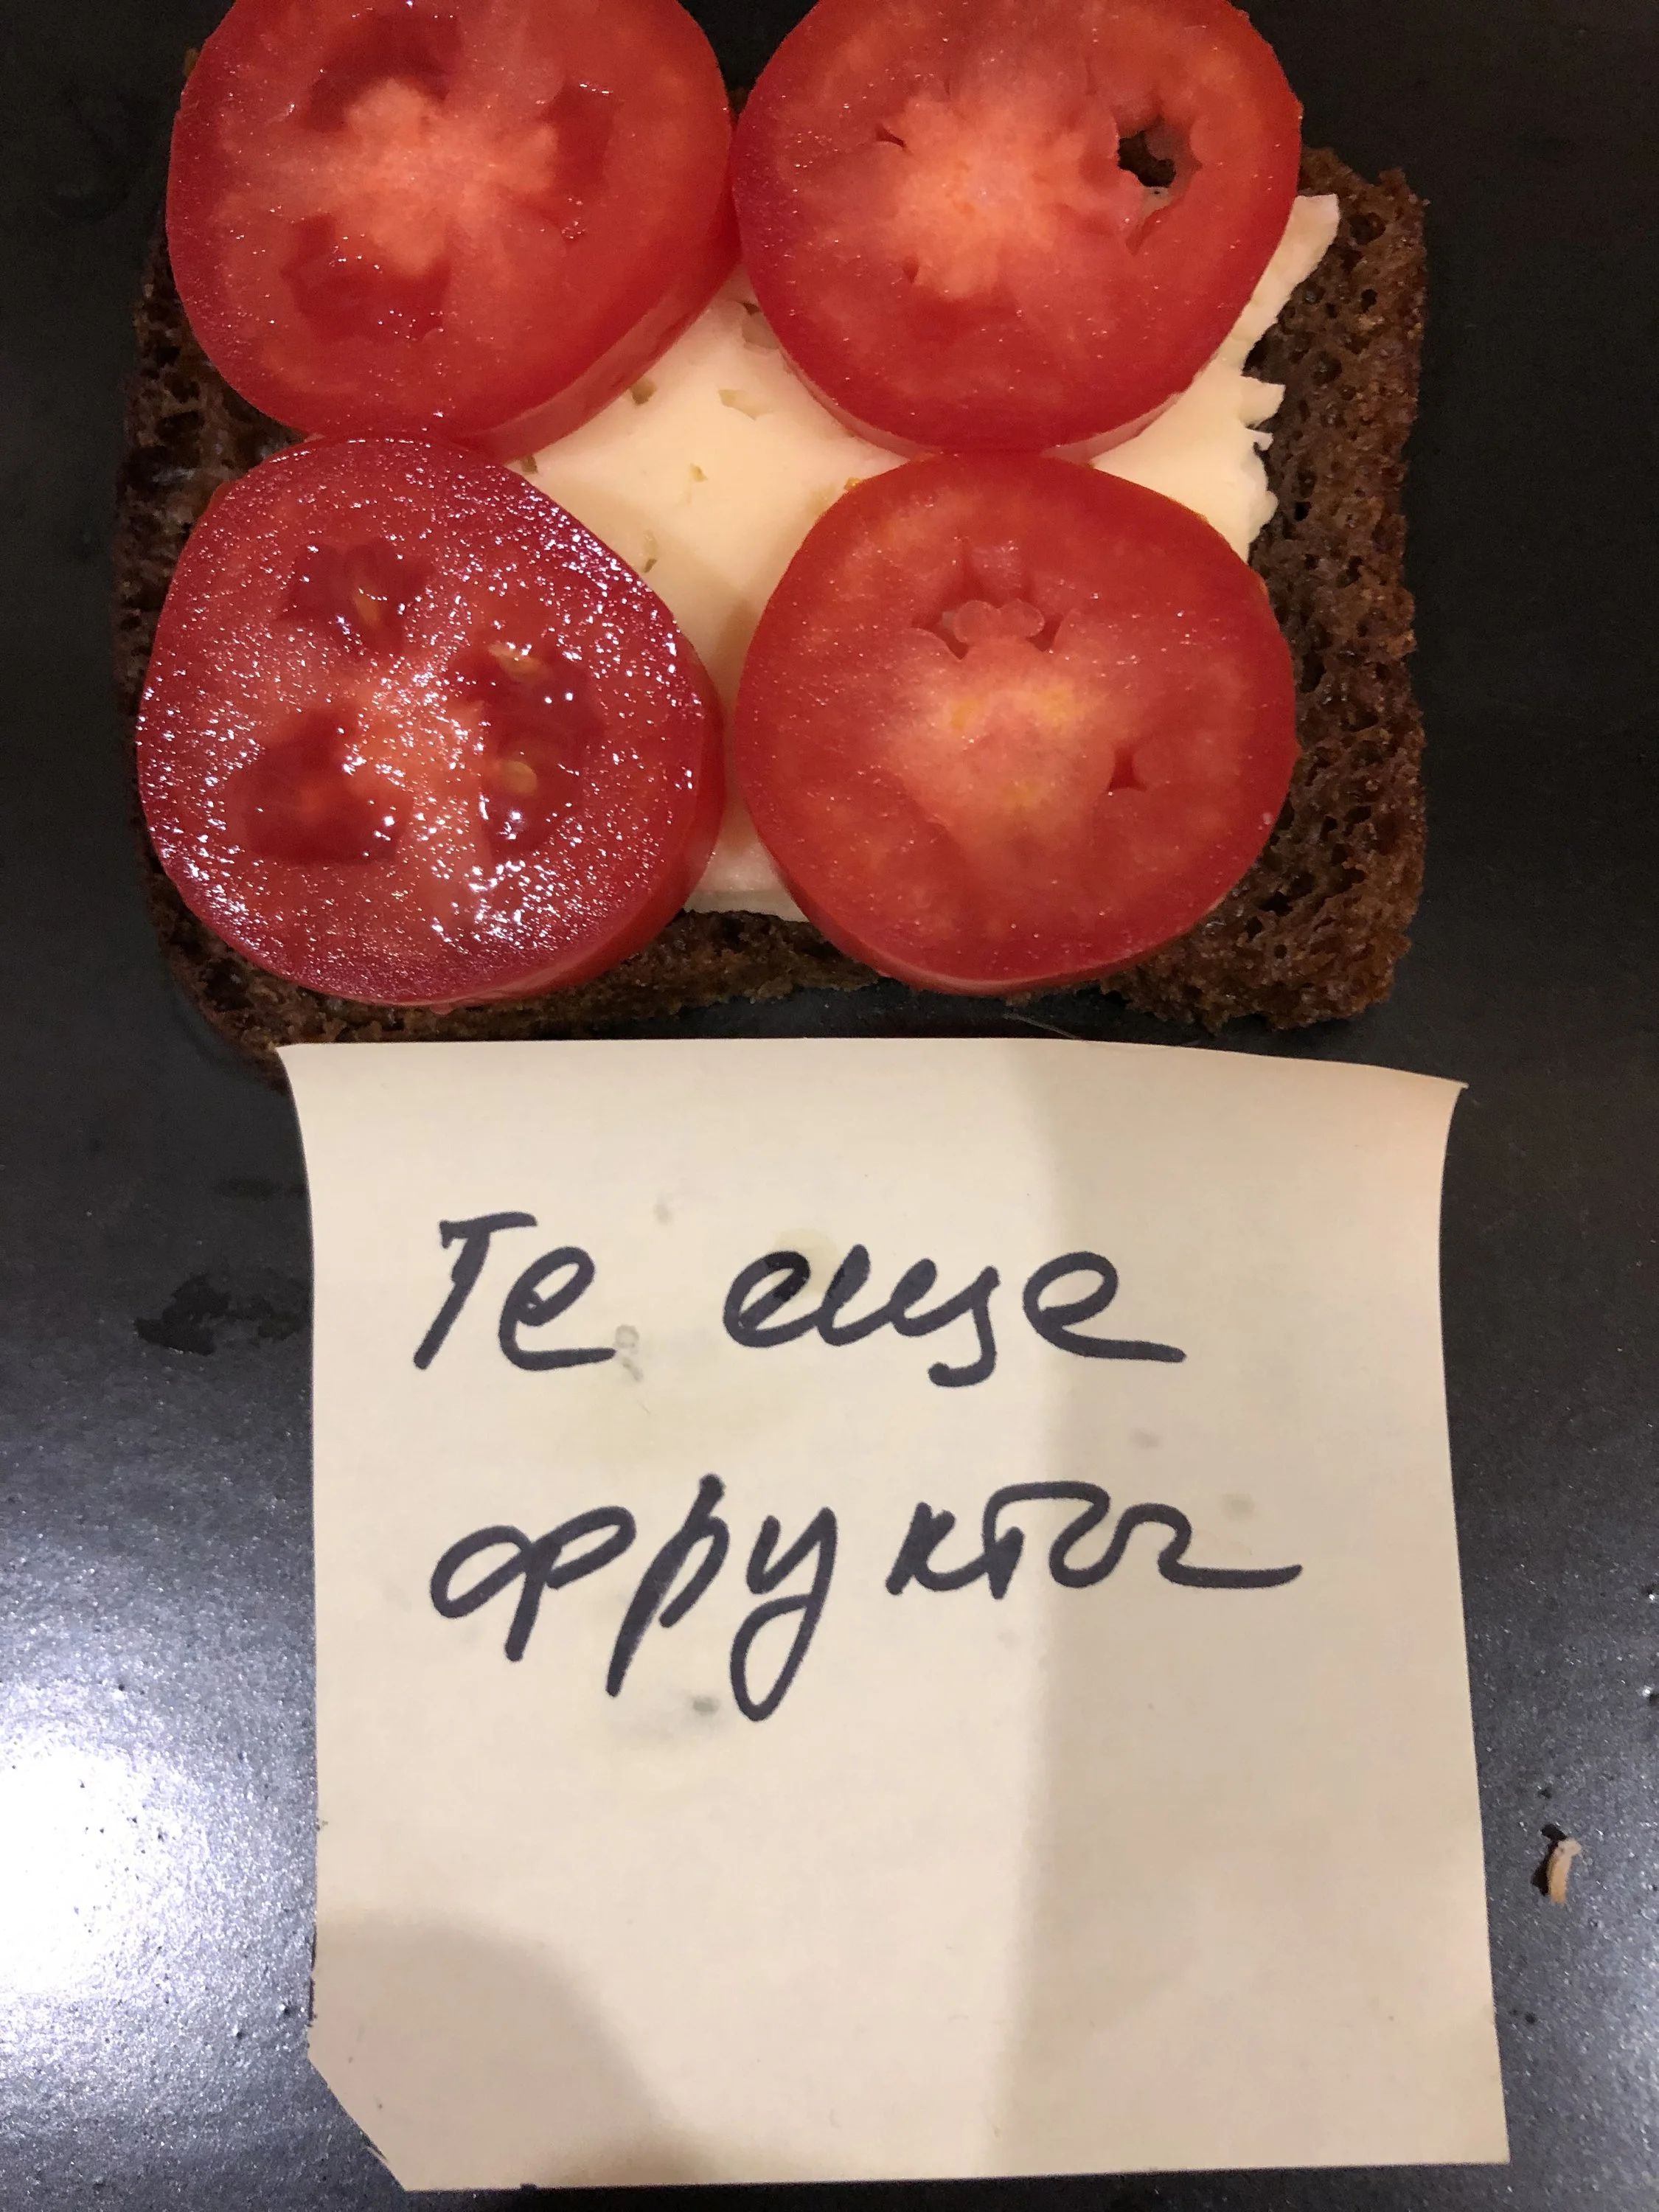 Те еще
фрукты